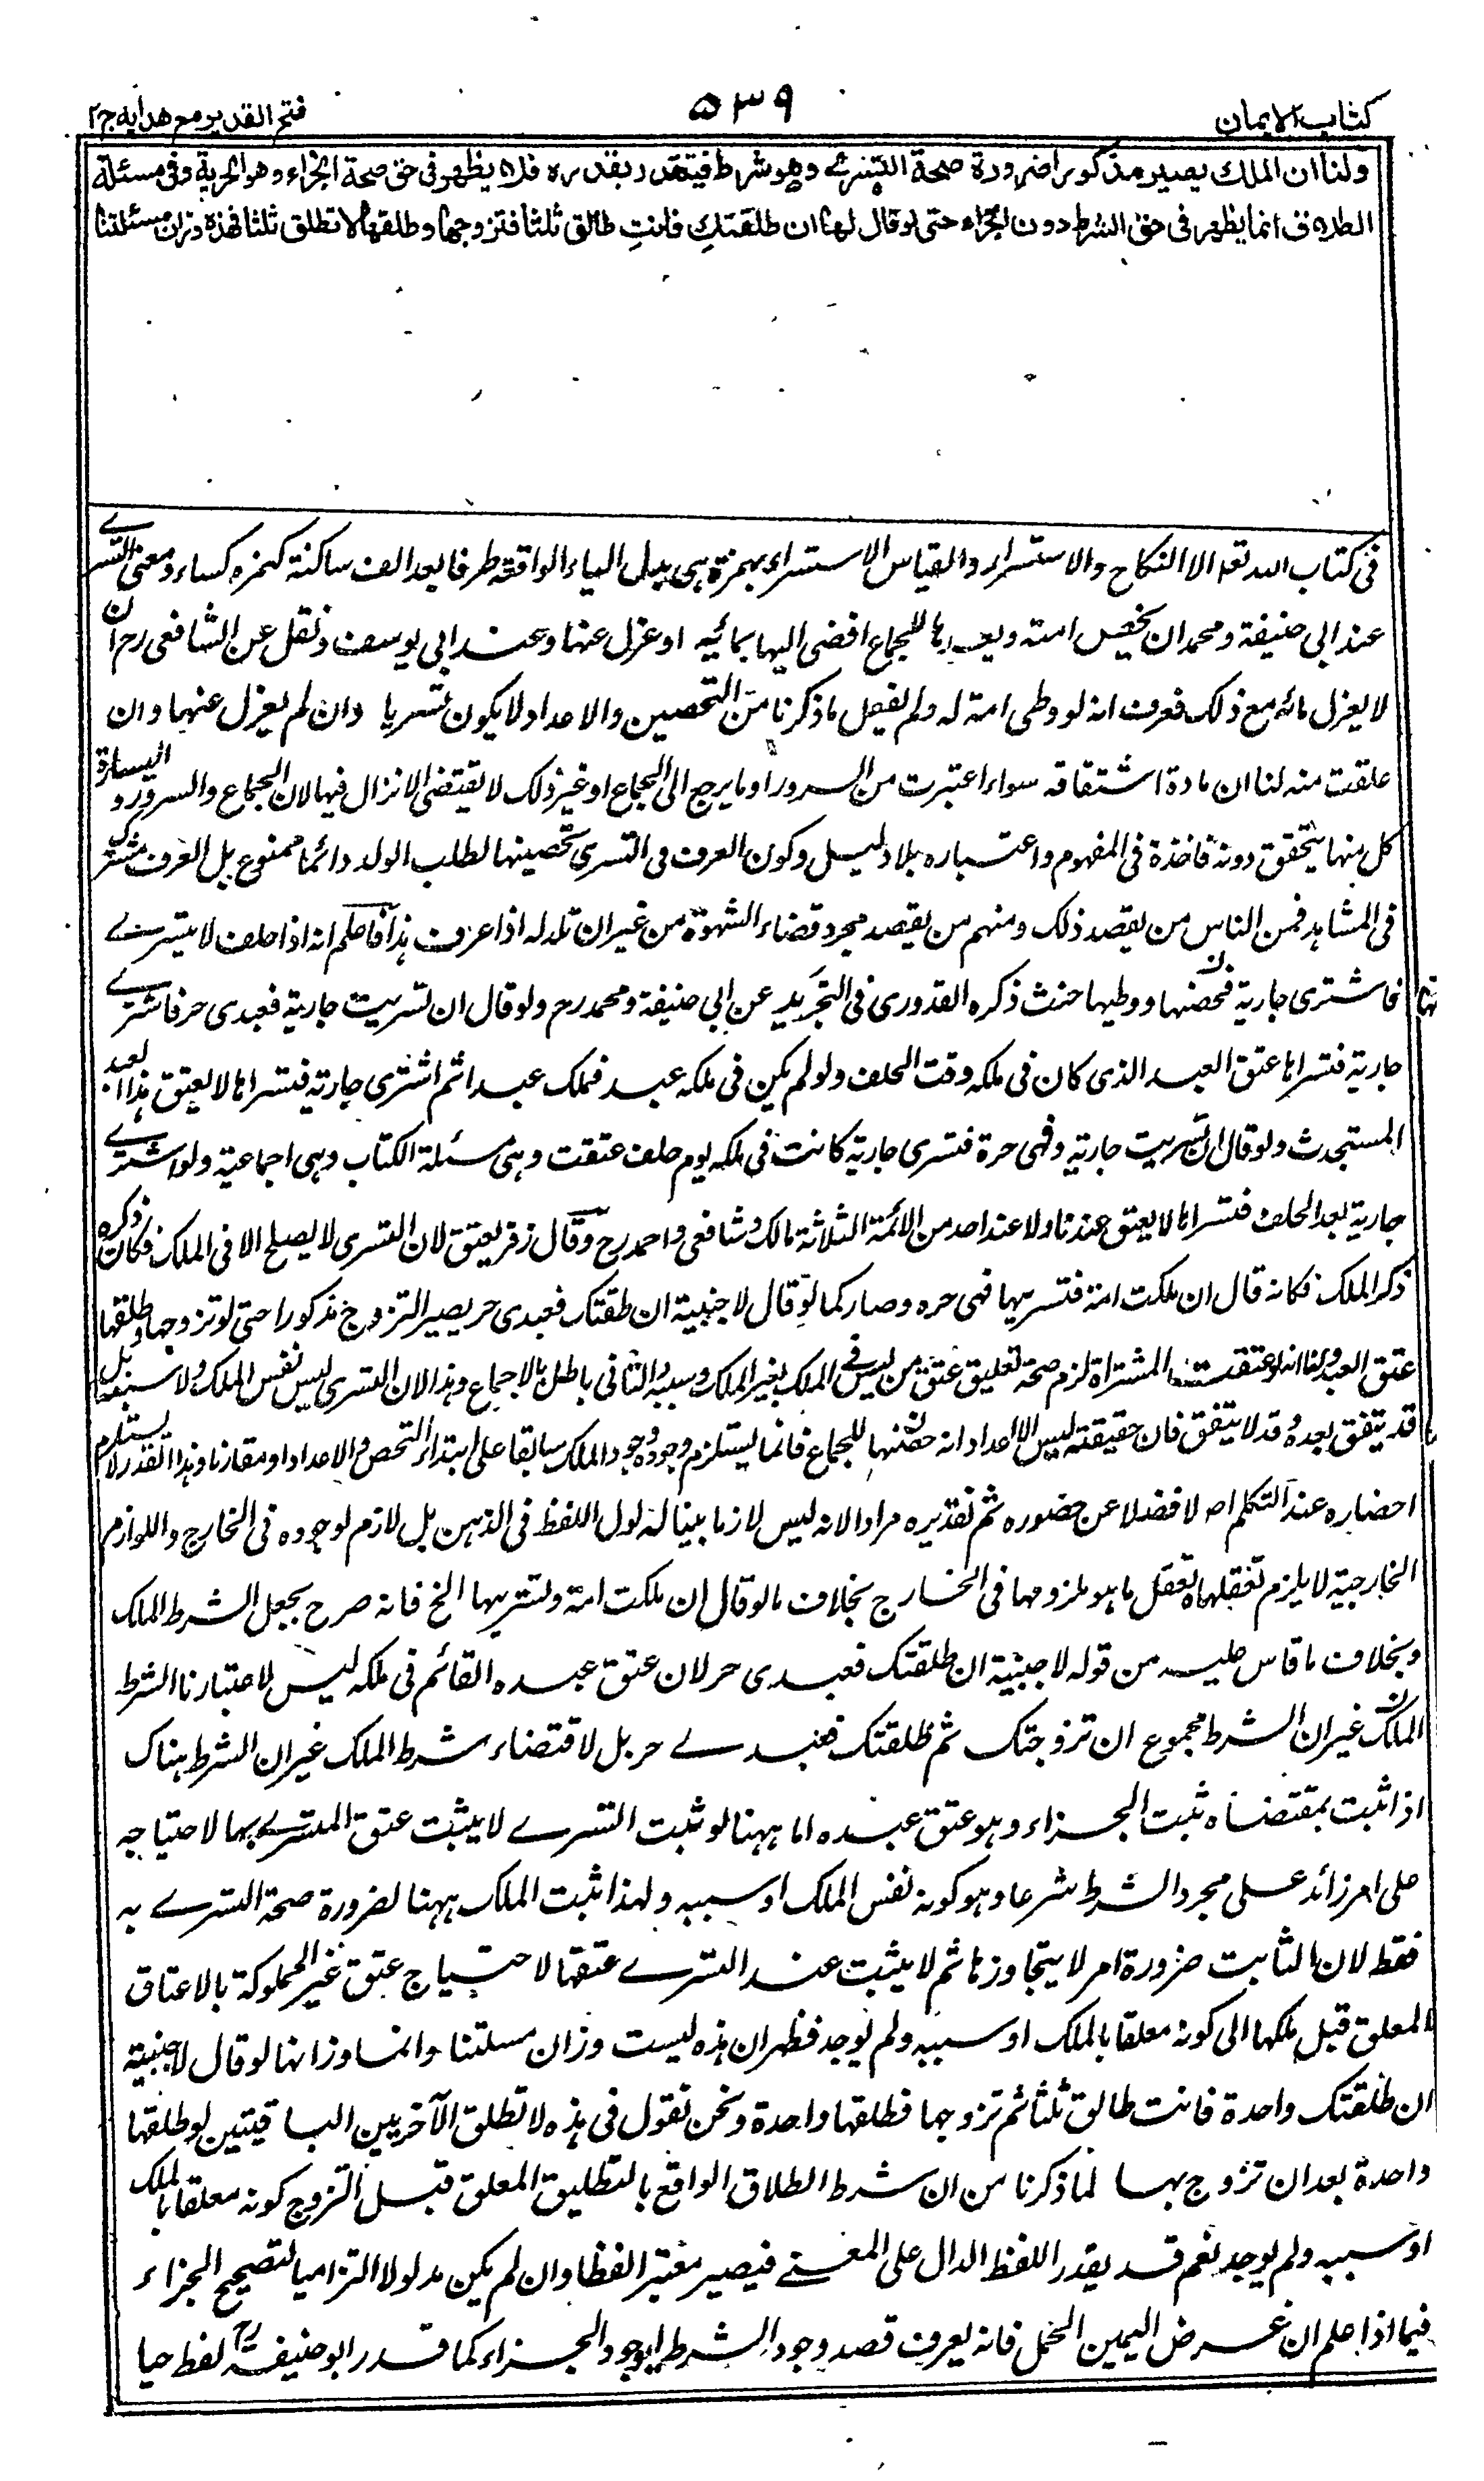 كتاب الايمان
٥٣٩
فتح القدير مع هدايه ج٢
ولنا ان الملك يصير مذكورا ضرورة صحة التسري وهو شرط فيتقدر بقدره فلا يظهر في حق صحة الجزاء وهو الحرية وفي مسئلة
الطلاق انما يظهر في حق الشرط دون الجزاء حتى لو قال لها ان طلقتكِ فانتِ طالق ثلثا فتزوجها وطلقها لا تطلق ثلثا فهذه وزان مسئلتنا
في كتاب الله تعـ الا النكاح والاستسراء والقياس الاستسراء بهمزة هي بدل الياء الواقعة طرفا بعد الف ساكنة كهمزه كساء ومعنى التسرے
عند ابي حنيفة ومحمد ان يحصن امته ويعدها للجماع افضى اليها بمائه او عزل عنها وعند ابي يوسف ونقل عن الشافعي رح ان
لا يعزل مائه مع ذلك فعرف انه لو وطى امة له ولم يفعل ما ذكرنا من التحصين والاعداد لا يكون تسريا وان لم يعزل عنها وان
علقت منه لنا ان مادة اشتقاقه سواء اعتبرت من السرور او ما يرجع الى الجماع او غير ذلك لا تقتضى الانزال فيها لان الجماع والسرور و السيادة
كل منها يتحقق دونه فاخذه في المفهوم واعتباره بلا دليل وكون العرف في التسرى تحصينها لطلب الولد دائما ممنوع بل العرف مشترك
في المشاهد فمن الناس من يقصد ذلك ومنهم من يقصد مجرد قضاء الشهوة من غير ان تلد له اذا عرف هذا فاعلم انه اذا حلف لا يتسرے
فاشترى جارية فحصنها ووطيها حنث ذكره القدوري في التجريد عن ابي حنيفة ومحمد رح ولو قال ان تسريت جارية فعبدى حر فاشترے
جارية فتسراها عتق العبد الذى كان في ملكه وقت الحلف ولو لم يكن في ملكه عبد فملك عبدا ثم اشترى جارية فتسراها لا يعتق هذا العبد
المستحدث ولو قال ان تسريت جارية وفهى حرة فتسرى جارية كانت في ملكه يوم حلف عتقت وهى مسئلة الكتاب وهى اجماعية ولو اشترے
جارية بعد الحلف فتسراها لا يعتق عندنا ولا عند احد من الائمة الثلاثة مالك وشافعي واحمد رح وقال زفر يعتق لان التسرى لا يصلح الا في الملك فكان ذكره
ذكر الملك فكانه قال ان ملكت امة فتسريها فهى حره وصار كما لو قال لاجنبية ان طلقتك فعبدى حر يصير التزوج مذكورا حتى لو تزوجها وطلقها
عتق العبد ولنا انه لو عتقت المشتراة لزم صحة تعليق عتق من ليس في الملك بغير الملك وسببه والثاني باطل بالاجماع وهذا لان التسرى ليس نفس الملك ولا سببه بل
قد يتفق بعده وقد لا يتفق فان حقيقته ليس الا اعداد امة حصنها للجماع فانما يستلزم وجوده وجود الملك سابقا على ابتداء التحصن والاعداد او مقارنا وهذا القدر لا يستلزم
احضاره عند التكلم اصلا فضلا عن حضوره ثم تقديره مرادا لانه ليس لازما بينا لمدلول اللفظ في الذهن بل لازم لوجوده في الخارج واللوازم
الخارجية لا يلزم تعقلها تعقل ما هو ملزومها في الخارج بخلاف ما لو قال ان ملكت امة وتسريها الخ فانه صرح بجعل الشرط الملك
وبخلاف ما قاس عليه من قوله لاجنبية ان طلقتك فعبدى حر لان عتق عبده القائم في ملكه ليس لاعتبارنا الشرط
الملك غير ان الشرط مجموع ان تزوجتك ثم طلقتك فعبدے حر بل لاقتضاء شرط الملك غير ان الشرط هناك
اذا ثبت بمقتضاه ثبت الجزاء وهو عتق عبده اما ههنا لو ثبت التسرے لا يثبت عتق المتسرے بها لاحتياجه
على امر زائد على مجرد الشرط شرعا وهو كونه نفس الملك او سببه ولهذا ثبت الملك ههنا لضرورة صحة التسرے به
فقط لان الثابت ضرورة امر لا يتجاوزها ثم لا يثبت عند التسرے عتقها لاحتياج عتق غير المملوكة بالاعتاق
المعلق قبل ملكها الى كونه معلقا بالملك او سببه ولم يوجد فظهر ان هذه ليست وزان مسئلتنا وانما وزانها لو قال لاجنبية
ان طلقتك واحدة فانت طالق ثلثا ثم تزوجها فطلقها واحدة ونحن نقول في هذه لا تطلق الآخريين الباقيتين لو طلقها
واحدة بعد ان تزوج بها لما ذكرنا من ان شرط الطلاق الواقع بالتطليق المعلق قبل التزوج كونه معلقا بالملك
او سببه ولم يوجد نعم قد يقدر اللفظ الدال على المعنے فيصير معتبر الفظا وان لم يكن مدلولا التزاميا لتصحيح الجزاء
فيما اذا علم ان غرض اليمين الحمل فانه يعرف قصد وجود الشرط ليوجد الجزاء كما قدر ابو حنيفة رح لفظ حيا